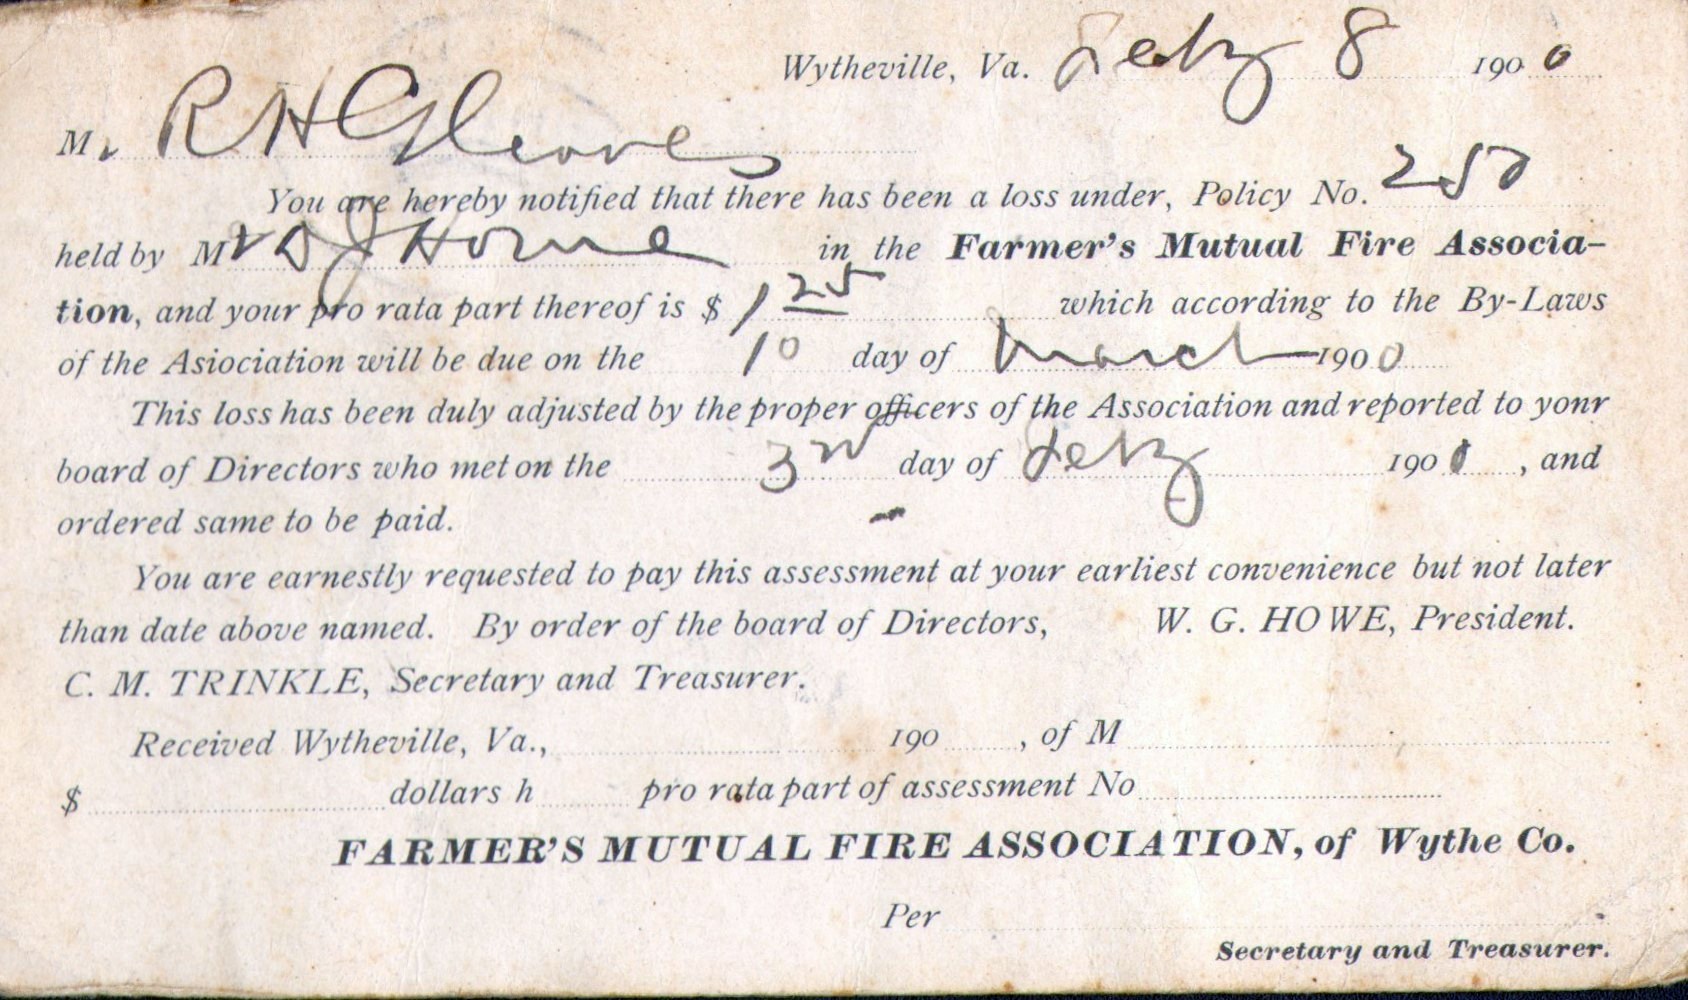 Wytheville, Va. Feby 8 1900
Mr R H Gleaves
You are hereby notified that there has been a loss under, Policy No. 250
held by Mr D J Horne in the Farmer's Mutual Fire Associa-
tion, and your pro rata part thereof is $ 1 25 which according to the By-Laws
of the Asiociation will be due on the 10 day of March 1900
This loss has been duly adjusted by the proper officers of the Association and reported to yonr
board of Directors who met on the 3rd day of Feby 1900, and
ordered same to be paid.
You are earnestly requested to pay this assessment at your earliest convenience but not later
than date above named. By order of the board of Directors, W. G. HOWE, President.
C. M. TRINKLE, Secretary and Treasurer.
Received Wytheville, Va., 190 , of M
$ dollars h pro rata part of assessment No
FARMER'S MUTUAL FIRE ASSOCIATION, of Wythe Co.
Per
Secretary and Treasurer.